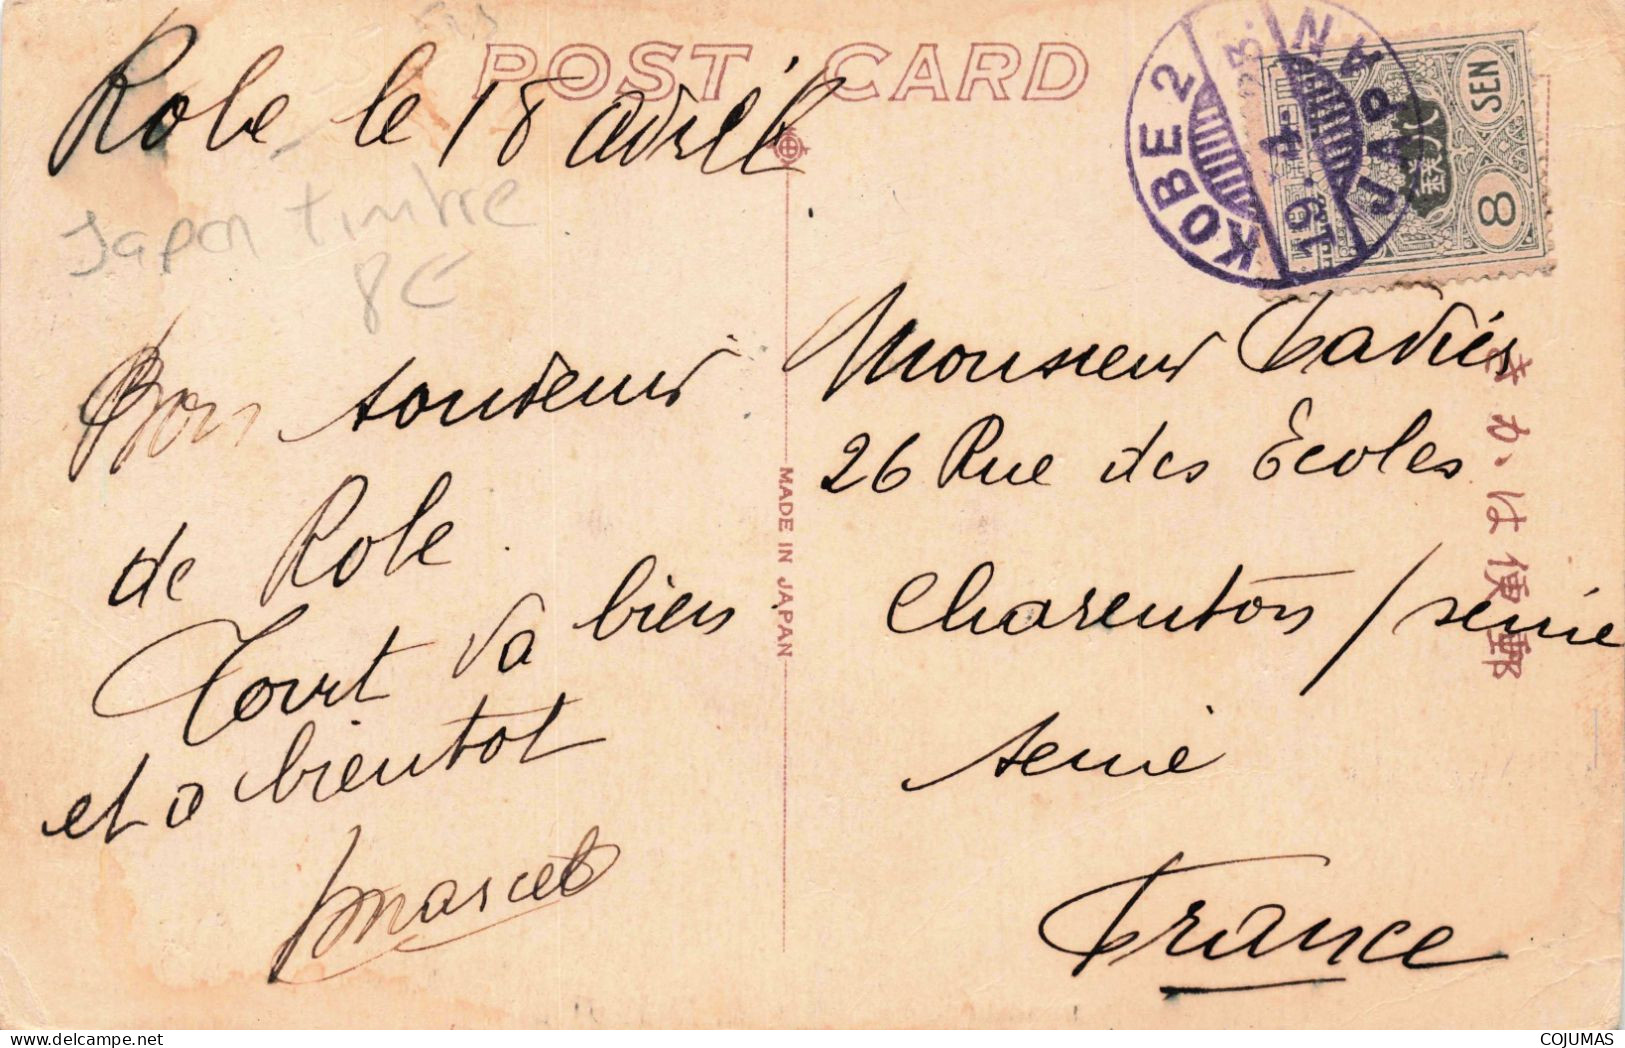 POST CARD
Kobe le 18 avril
Japon timbre
8€
Bon souvenir
de Kobe.
Tout va bien
et a bientot
Marcel
MADE IN JAPAN
KOBE 2
19.4.23.
JAPAN
SEN
8
Monsieur
26 Rue des Ecoles
Charenton / seine
seine
France
きかは便郵
COJUMAS